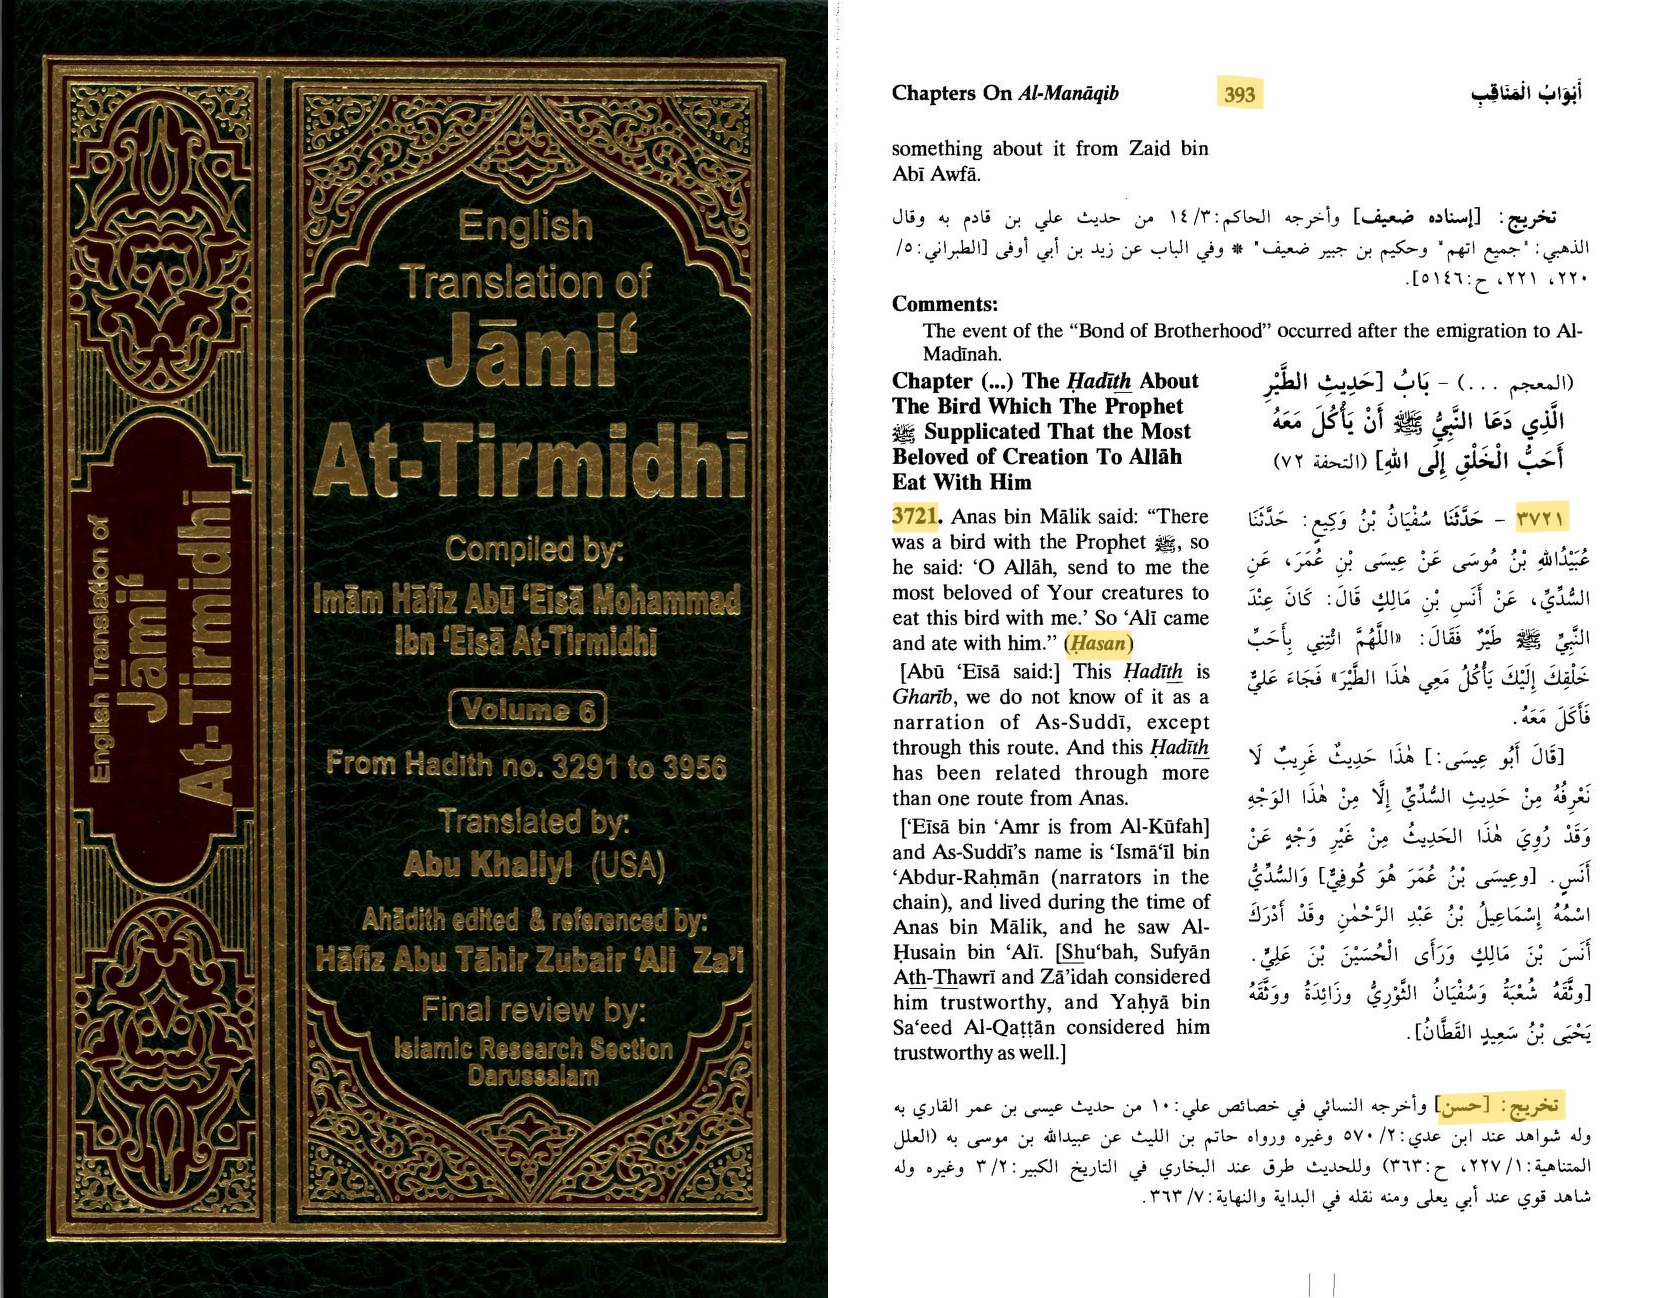 English Translation of
Jāmi‘
At-Tirmidhī
English
Translation of
Jāmi‘
At-Tirmidhī
Compiled by:
Imām Hāfiz Abū ‘Eisā Mohammad
Ibn ‘Eisā At-Tirmidhi
Volume 6
From Hadith no. 3291 to 3956
Translated by:
Abu Khaliyl (USA)
Ahādith edited & referenced by:
Hāfiz Abu Tāhir Zubair ‘Ali Za’i
Final review by:
Islamic Research Section
Darussalam
Chapters On Al-Manāqib 393 أَبْوَابُ الْمَنَاقِبِ
something about it from Zaid bin
Abī Awfā.
تخريج: [إسناده ضعيف] وأخرجه الحاكم: ٣/ ١٤ من حديث علي بن قادم به وقال
الذهبي: "جميع اتهم" وحكيم بن جبير ضعيف" * وفي الباب عن زيد بن أبي أوفى [الطبراني: ٥/
٢٢٠، ٢٢١، ح: ٥١٤٦].
Comments:
The event of the “Bond of Brotherhood” occurred after the emigration to Al-
Madīnah.
Chapter (...) The Ḥadīth About
The Bird Which The Prophet
ﷺ Supplicated That the Most
Beloved of Creation To Allāh
Eat With Him
(المعجم . . .) - بَابُ [حَدِيثِ الطَّيْرِ
الَّذِي دَعَا النَّبِيُّ ﷺ أَنْ يَأْكُلَ مَعَهُ
أَحَبُّ الْخَلْقِ إِلَى اللهِ] (التحفة ٧٢)
3721. Anas bin Mālik said: “There
was a bird with the Prophet ﷺ, so
he said: ‘O Allāh, send to me the
most beloved of Your creatures to
eat this bird with me.’ So ‘Alī came
and ate with him.” (Ḥasan)
[Abū ‘Eīsā said:] This Ḥadīth is
Gharīb, we do not know of it as a
narration of As-Suddī, except
through this route. And this Ḥadīth
has been related through more
than one route from Anas.
[‘Eīsā bin ‘Amr is from Al-Kūfah]
and As-Suddī’s name is ‘Ismā‘īl bin
‘Abdur-Raḥmān (narrators in the
chain), and lived during the time of
Anas bin Mālik, and he saw Al-
Ḥusain bin ‘Alī. [Shu‘bah, Sufyān
Ath-Thawrī and Zā’idah considered
him trustworthy, and Yaḥyā bin
Sa‘eed Al-Qaṭṭān considered him
trustworthy as well.]
٣٧٢١ - حَدَّثَنَا سُفْيَانُ بْنُ وَكِيعٍ: حَدَّثَنَا
عُبَيْدُاللهِ بْنُ مُوسَى عَنْ عِيسَى بْنِ عُمَرَ، عَنِ
السُّدِّيِّ، عَنْ أَنَسِ بْنِ مَالِكٍ قَالَ: كَانَ عِنْدَ
النَّبِيِّ ﷺ طَيْرٌ فَقَالَ: «اللَّهُمَّ ائْتِنِي بِأَحَبِّ
خَلْقِكَ إِلَيْكَ يَأْكُلُ مَعِي هٰذَا الطَّيْرَ» فَجَاءَ عَلِيٌّ
فَأَكَلَ مَعَهُ.
[قَالَ أَبُو عِيسَى:] هٰذَا حَدِيثٌ غَرِيبٌ لَا
نَعْرِفُهُ مِنْ حَدِيثِ السُّدِّيِّ إِلَّا مِنْ هٰذَا الوَجْهِ
وَقَدْ رُوِيَ هٰذَا الحَدِيثُ مِنْ غَيْرِ وَجْهٍ عَنْ
أَنَسٍ. [وعِيسَى بْنُ عُمَرَ هُوَ كُوفِيٌّ] وَالسُّدِّيُّ
اسْمُهُ إِسْمَاعِيلُ بْنُ عَبْدِ الرَّحْمٰنِ وقَدْ أَدْرَكَ
أَنَسَ بْنَ مَالِكٍ وَرَأَى الْحُسَيْنَ بْنَ عَلِيٍّ.
[وثَّقَهُ شُعْبَةُ وَسُفْيَانُ الثَّوْرِيُّ وزَائِدَةُ ووَثَّقَهُ
يَحْيَى بْنُ سَعِيدٍ القَطَّانُ].
تخريج: [حسن] وأخرجه النسائي في خصائص علي: ١٠ من حديث عيسى بن عمر القاري به
وله شواهد عند ابن عدي: ٢/ ٥٧٠ وغيره ورواه حاتم بن الليث عن عبيدالله بن موسى به (العلل
المتناهية: ١/ ٢٢٧، ح: ٣٦٣) وللحديث طرق عند البخاري في التاريخ الكبير: ٢/ ٣ وغيره وله
شاهد قوي عند أبي يعلى ومنه نقله في البداية والنهاية: ٧/ ٣٦٣.